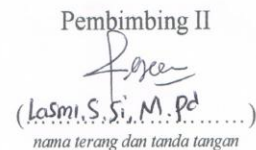 Pembimbing II
(Lasmi, S.Si, M.Pd)
nama terang dan tanda tangan